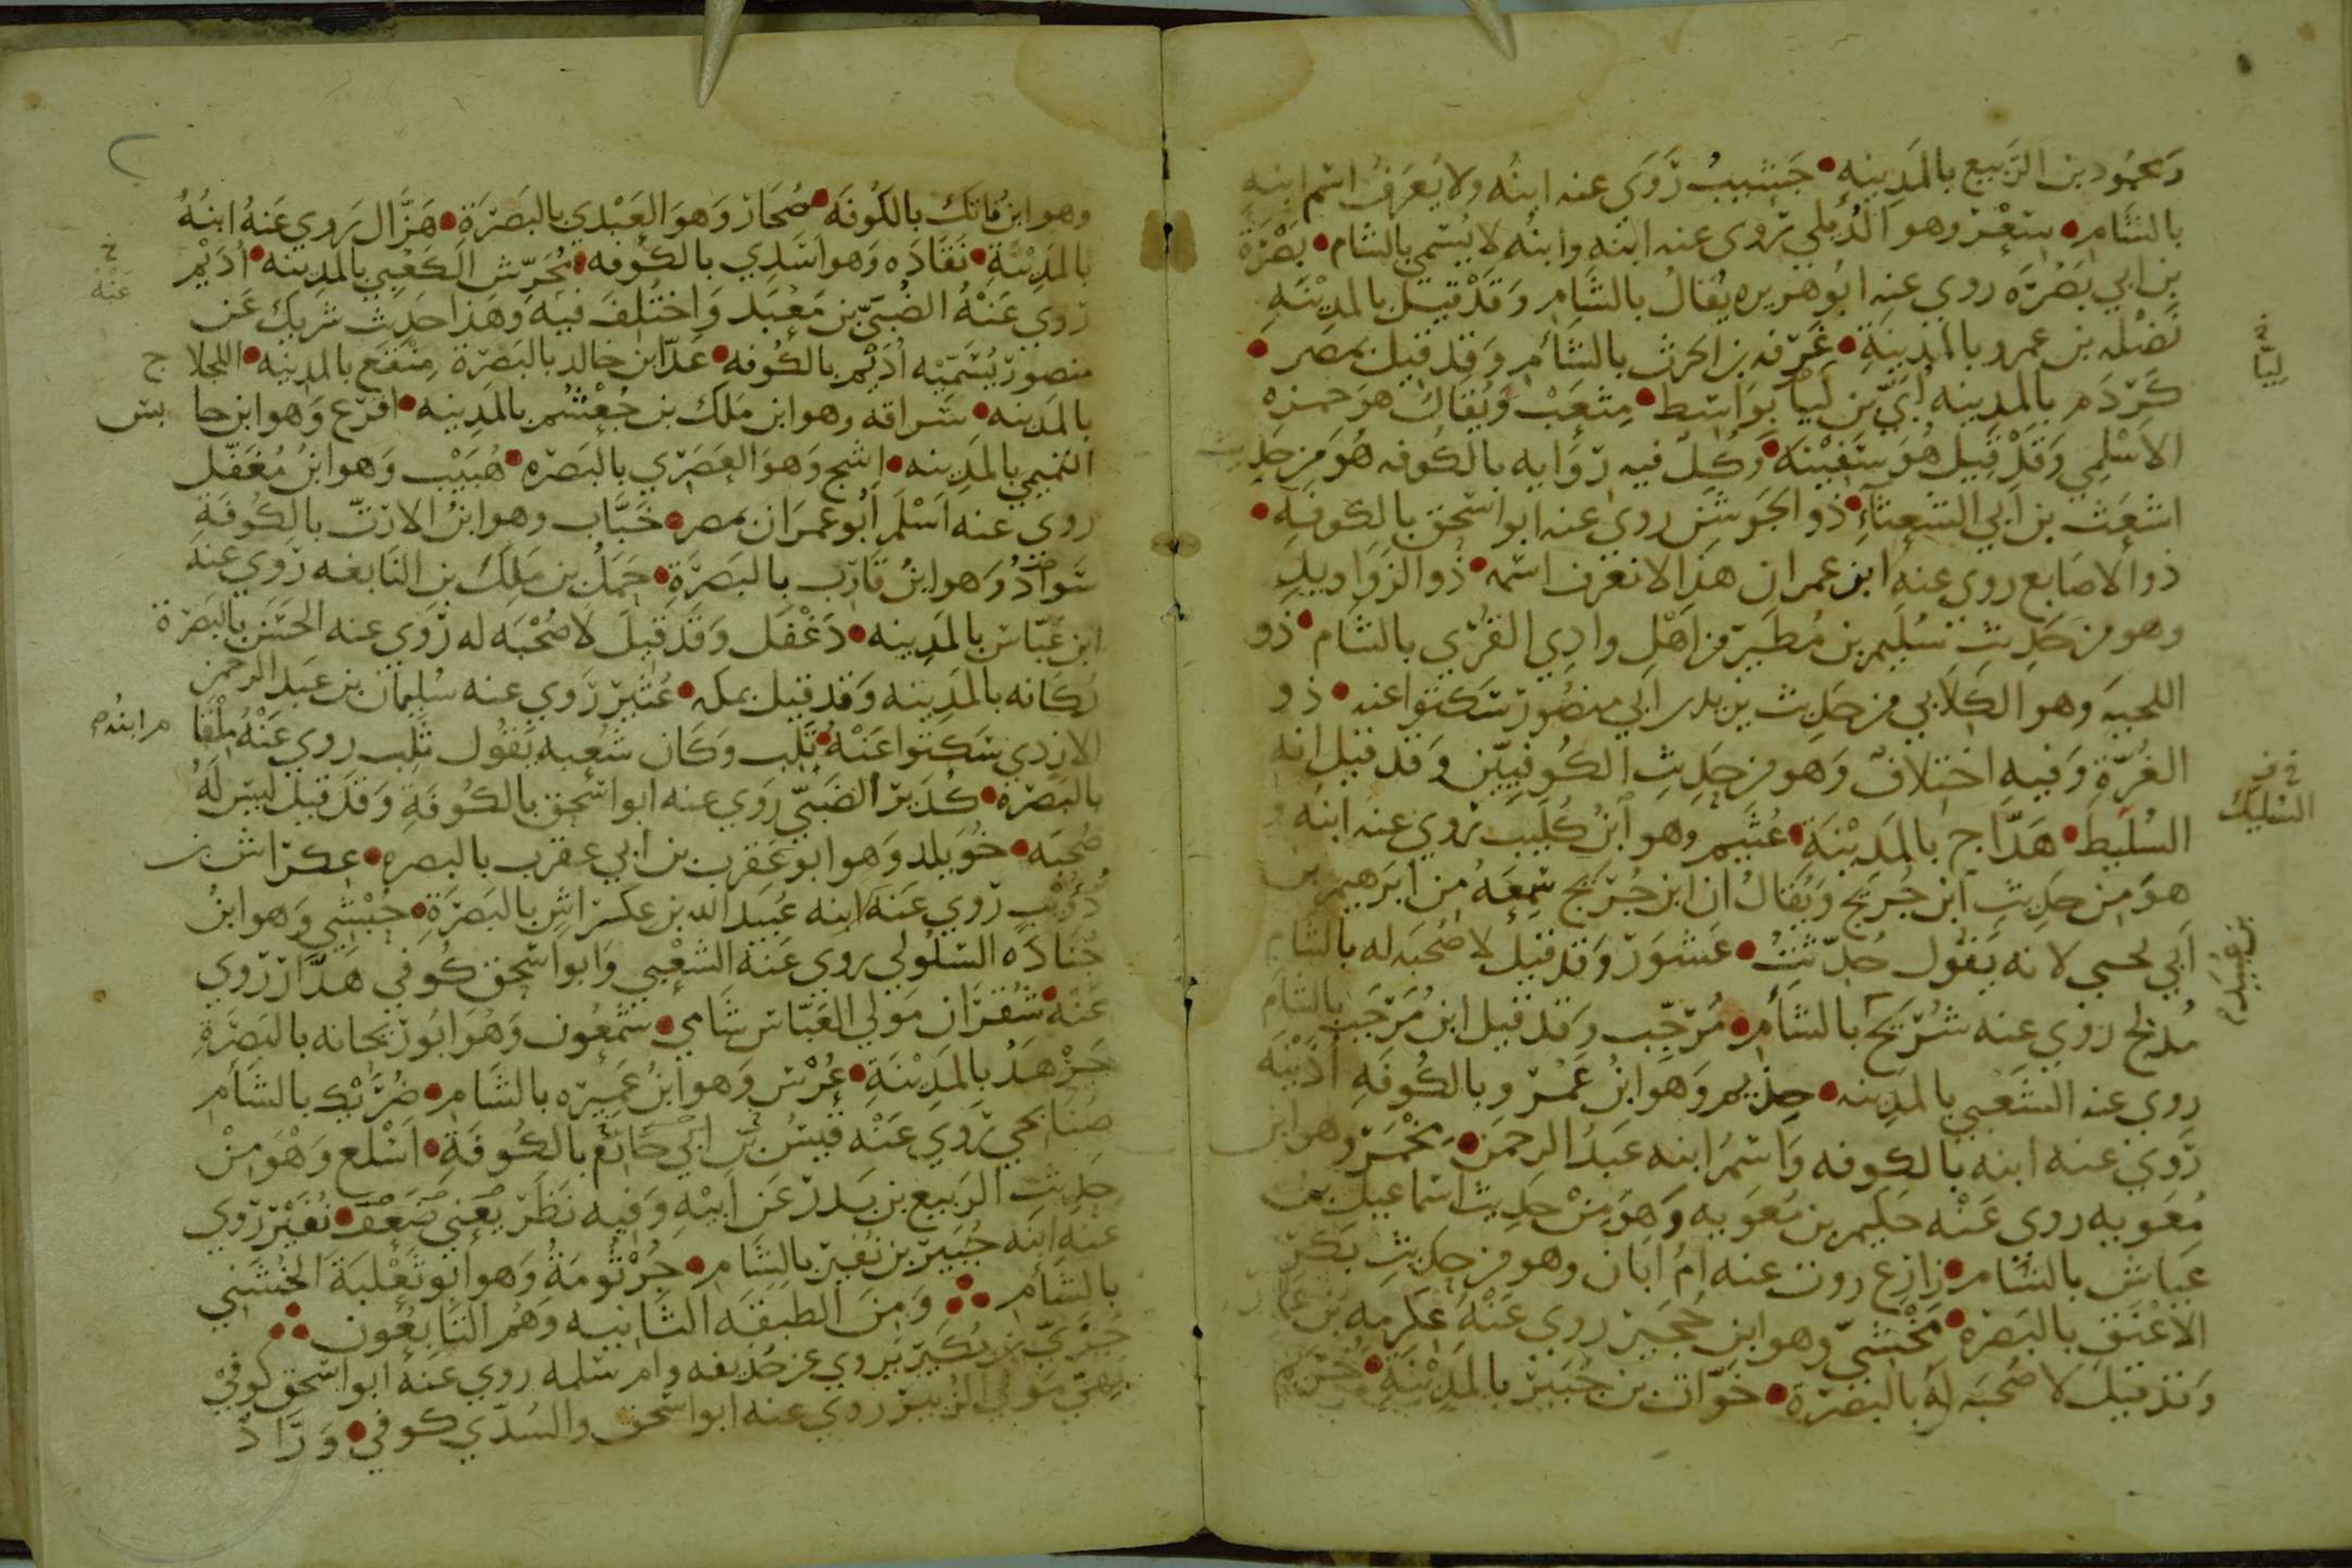 وَمحمُود بن الرَّبيع بالمَدِينه • جَشيبٌ رَوَى عنه ابنُه ولا يُعرَفُ اسم ابنه
بالشام • سَعْر وهو الدُّيلي روى عنه ابنُه وابنُه لا يُسَمى بالشام • بَصْرَة
بن ابي بَصْرَه روي عنه ابُو هريره يُقالُ بالشام وَقَدْ قيل بالمَدِيْنَهِ
نَضْله بن عمرو بالمدِينَةِ • غَرَفه بن الحرث بالشام وَقد قيل بمصر •
كَرْدَم بالمدِينه أُبَيّ بن لَبَا بوَاسِط • مِتْعَبْ وَيُقالُ هوَ حمزه
الاسْلمي وَقَدْ قيل هُوَ سَفِيْنَه وَكُلٌ فيه رِوَايه بالكوفه هُوَ مِن حَدِيث
اشعَث بن أبي الشعثآءِ • ذو الجَوشَن روي عنه ابو اسْحق بالكوفَهِ •
ذو الاصَابع روي عنه ابن عمران هذا لا نعرف اسمه • ذو الزوَاويل
وهو من حَدِيثِ سُلَيم بن مُطَير من اهْل وادِي القرُي بالشام • ذو
اللحيَه وهو الكِلَابي من حَدِيث ابي منصُور سَكتوا عنه • ذو
الغُرَّةِ وَفيهِ اختلافٌ وَهو من حَدِيثِ الكُوفِيّين وَقد قيل انه
السُليط • هَدَّاج بالمَدِيْنَة • عُثَيم وهو ابنُ كُلَيب روي عنه ابنه و
هوَ مِن حَدِيثِ ابن جُرَيج وَيُقالُ ان ابن جُرَيج سَمِعَهُ مِن ابرَهيم بن
أبي يحيى لانه يَقُول حُدّثتُ • عَسْوَر وَقد قيل لا صُحبَه له بالشام
مُدلج روي عنه شُرَيح بالشَام • مُرَحّب وَقد قيل ابن مُرَحّب بالشام
روي عنه الشَعْبي بالمدِينه • حِذيم وَهوَ ابنُ عَمْرو بالكُوفَهِ أُذَيْنَه
رَوي عنه ابنه بالكوفه وَاسْمُ ابنه عَبدُ الرحمَن • مخْمَر وهو ابن
مُعَويه روى عَنْه حَكيم بن مُعَويه وَهوَ مِنْ حَدِيث اسماعيل بن
عياش بالشام • زارع روت عنه امُ ابان وهو من حدِيث بَكر
الاعْنق بالبَصرَه • مَخْشيّ وهو ابن حُجَير روي عَنْهُ عِكرمه بن عمار
وَقد قيل لا صُحبَه لهُ بالبَصرَة • خوّات بن جُبَير بالمَدِيْنَةِ • خُريم
لَبيّا
السُليك
بن عُبيد
وهو ابن فاتك بالكُوفَه • صُحَار وَهوَ العَبْدي بالبَصرَة • هَزَّال رَوي عَنهُ ابنُهُ
بالمَدِيْنَةِ • نُقَادَه وَهو اسَدِي بالكُوفه • مُحَرّش الكَعْبي بالمَدِينه • أُدَيْم
رَوي عَنْهُ الصُبَيّ بن مَعْبَد وَاختُلِفَ فيه وَهَذا حَدِيث شريك عَن
منصور يُسَمّيْه أُدَيْم بالكُوفه • عَدّا بن خالد بالبَصرَة مِنْقَع بالمدِينه • اللجلاج
بالمَدينه • سُراقه وهو ابن مَلك بن جُعْشُم بالمَدِينه • اقرَع وَهو ابن حابس
التميمي بالمَدِينه • اشج وَهوَ العَصَري بالبَصرَه • هُبَيْب وَهو ابنُ مُغفَّل
روي عنه اسْلَم أبُو عمرَان بمصر • خَبَّاب وهو ابنُ الارَتّ بالكُوفَةِ
سَوادُ وَهو ابنُ قارب بالبَصرَةِ • حَمَلُ بن مَلِك بن النابغه رَوي عنه
ابن عَبّاس بالمَدِينه • دَغْفَل وَقَدْ قيلَ لا صُحْبَه له رَوَي عنه الحَسَن بالبَصرَة
رُكَانه بالمَدِينه وَقد قيل بمكه • عُثَير رَوي عنه سُليمان بن عبد الرحمن
الازدي سَكتوا عَنْهُ • تَلِب وَكَان شُعبه يَقُول ثَلِب روي عَنْهُ مِلْقا م ابنُه
بالبَصرَة • كُدَير الضَبّيّ رَوَي عنه ابو اسْحق بالكُوفَةِ وَقَدْ قيل ليس لَهُ
صُحبَه • خُوَيلد وَهو ابو عَقرَب بن أبي عقرب بالبصره • عكراش بن
ذُؤَيْبٍ رَوي عَنهُ ابنه عُبَيد الله بن عكراشٍ بالبَصرَةِ • حُبْشي وَهو ابنُ
جُنَادَه السَلُولي روي عَنهُ الشعْبي وَابو اسْحق كُوفي هَدَّار رَوي
عَنْه • شُقرَان مَوْلي العَبّاس شامي • شَمعُون وَهُوَ ابُو رَيحانه بالبَصرَةِ
جَرْهَدُ بالمَدِيْنَةِ • عُرْس وَهو ابنُ عَميرَه بالشَام • ضُرَيْك بالشَام
صُنابحي رَوَي عَنْه قيسُ بن ابي حَازم بالكُوفَةِ • اسْلع وَهْوَ مِنْ
حدِيثِ الرَبيع بن بَدرٍ عَن أبيْهِ وَفيه نَظَر يَعْني ضَعْف • نُفَيْر رَوي
عَنه ابنه جُبَير بن نُفير بالشَامِ • جُرْثُومَةُ وَهو ابو ثَعْلبَةَ الخُشَني
بالشام ⁘ وَمِنَ الطبَقَه الثانيه وَهُم التابعُون ⁘
جُرَيّ بن بُكَير يروي عن حُذيفه وام سَلمه روي عَنهُ ابو اسْحق كوفي
بَهيّ مَوْلي الزُبير روي عنه ابو اسْحق والسُدّي كوفي • وَرَّادُ
عَنْهُ